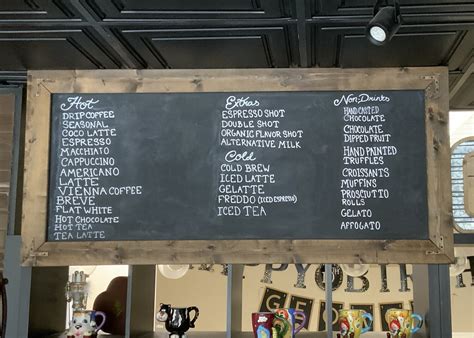 Hot
DRIP COFFEE
SEASONAL
COCO LATTE
ESPRESSO
MACCHIATO
CAPPUCCINO
AMERICANO
LATTE
VIENNA COFFEE
BREVE
FLAT WHITE
HOT CHOCOLATE
HOT TEA
TEA LATTE
Extras
ESPRESSO SHOT
DOUBLE SHOT
ORGANIC FLAVOR SHOT
ALTERNATIVE MILK
Cold
COLD BREW
ICED LATTE
GELATTE
FREDDO (ICED ESPRESSO)
ICED TEA
Non-Drinks
HAND CASTED
CHOCOLATE
CHOCOLATE
DIPPED FRUIT
HAND PAINTED
TRUFFLES
CROISSANTS
MUFFINS
PROSCIUTTO
ROLLS
GELATO
AFFOGATO